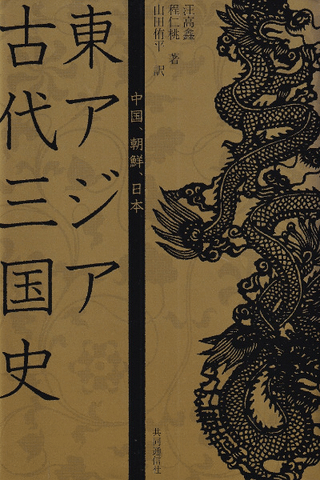 東アジア
古代三国史
中国、朝鮮、日本
汪高鑫
程仁桃 著
山田侑平 訳
共同通信社